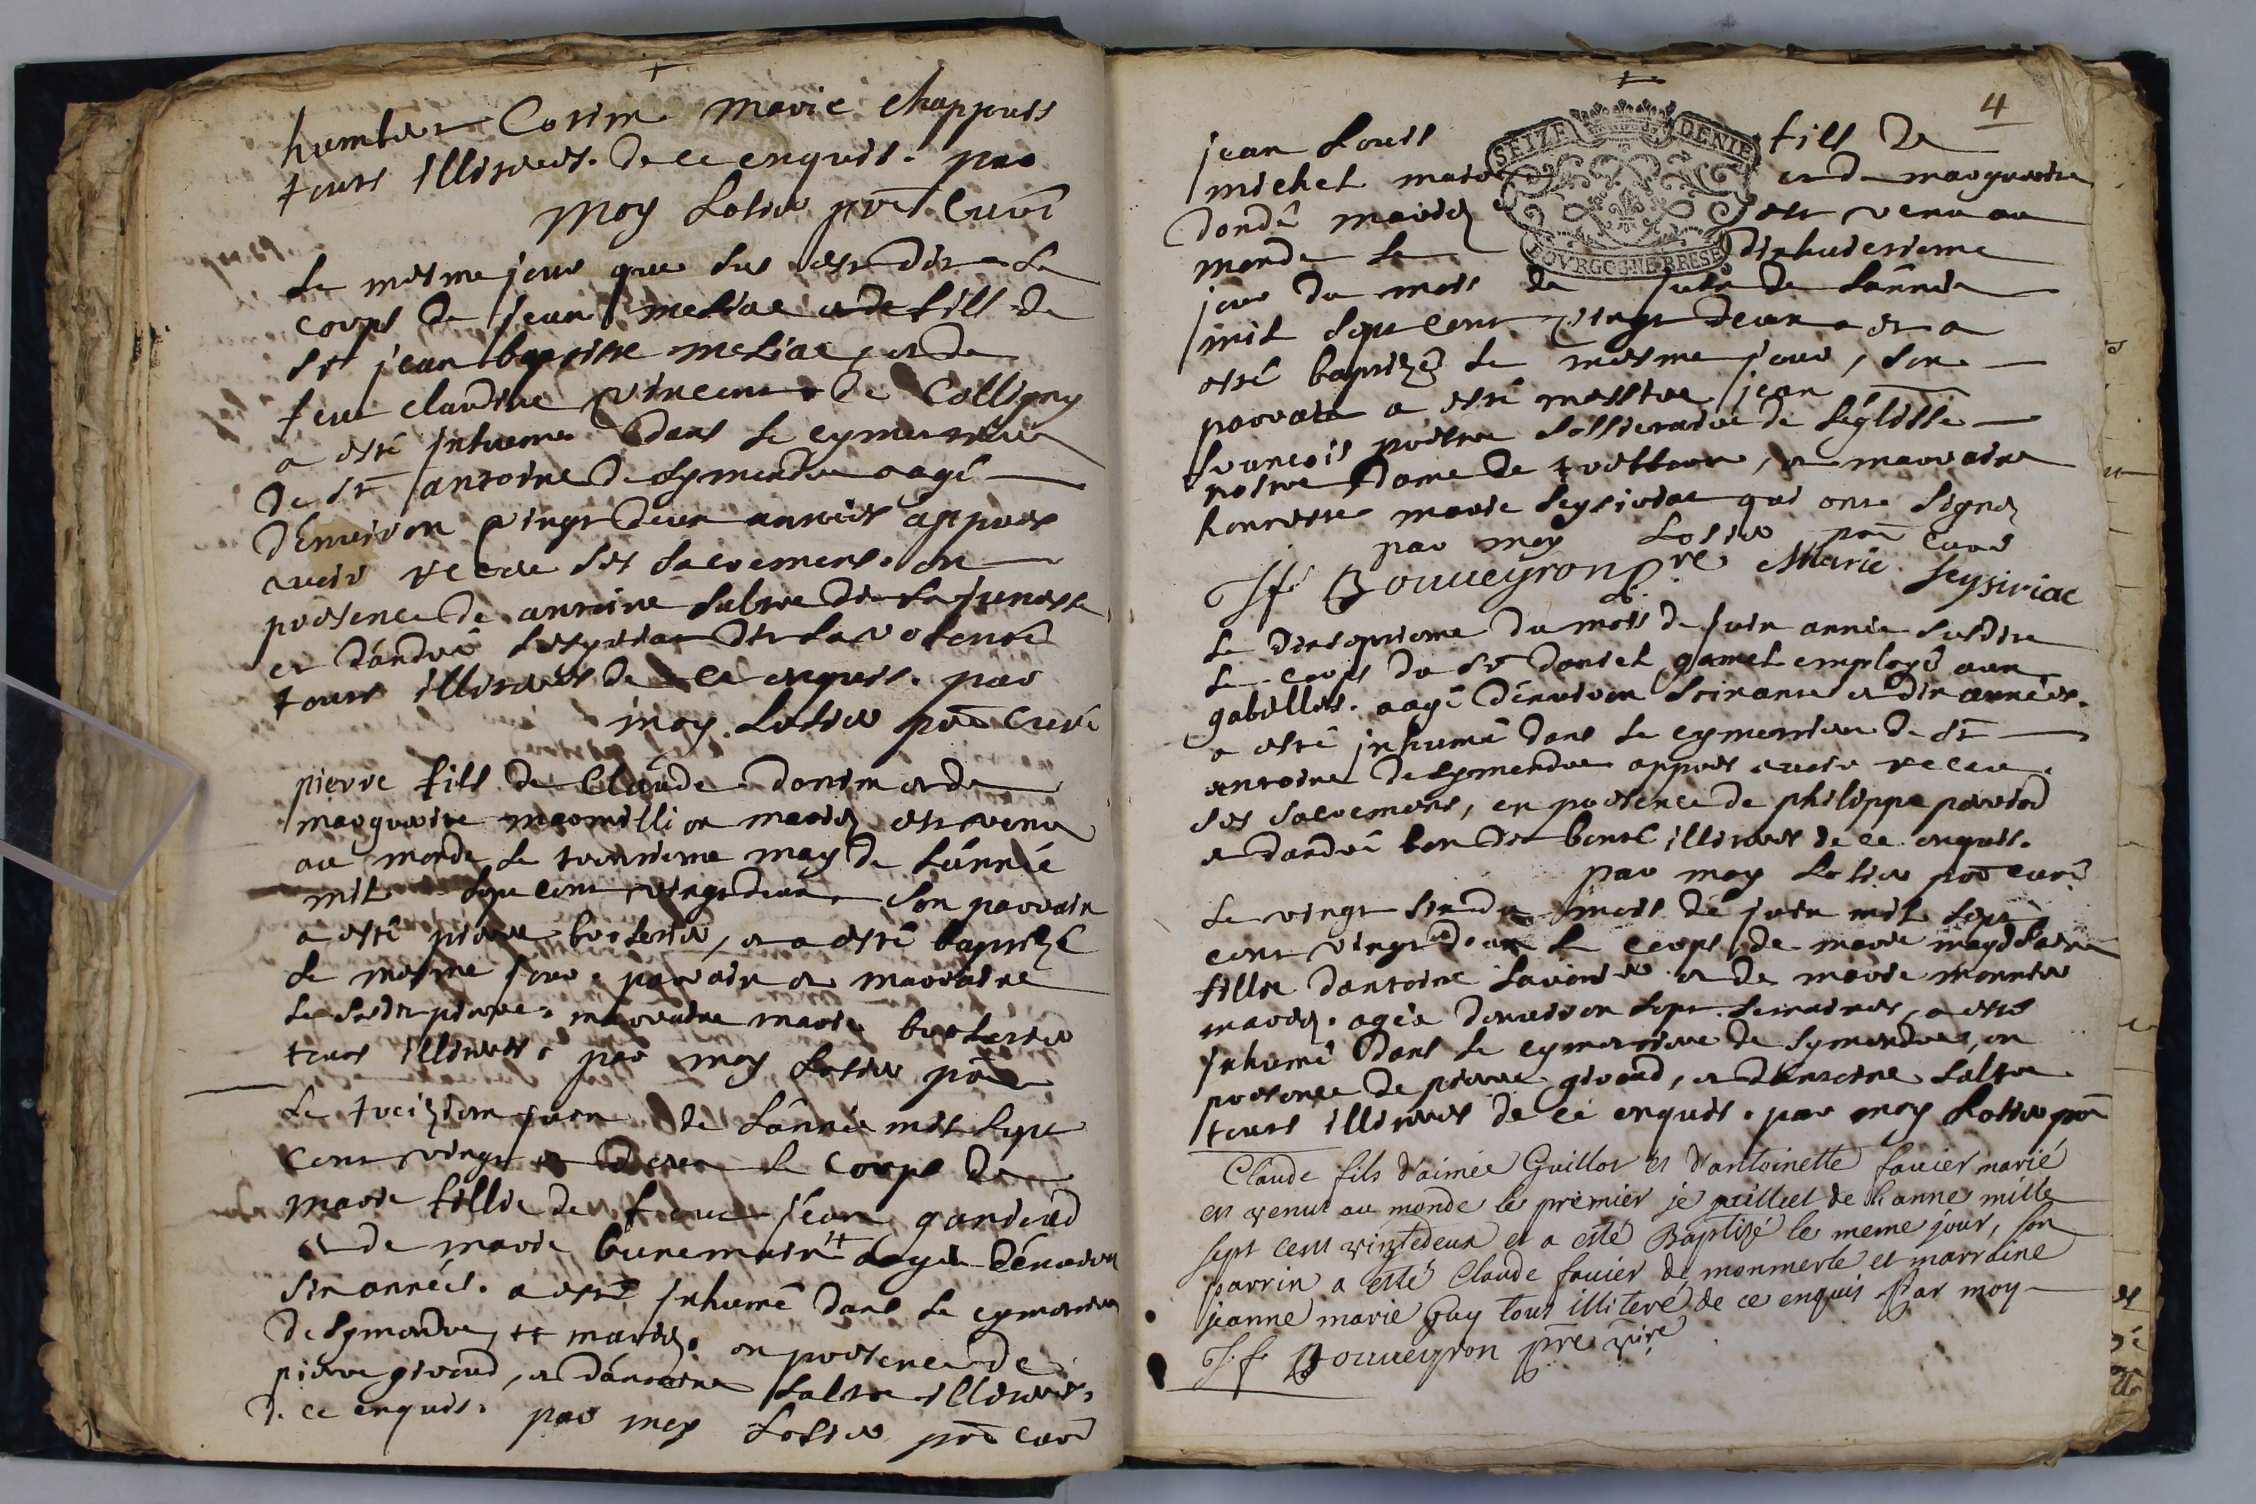 humber Cotin marie chappuis
tous illiterés. de ce enquis. par
moy Lotier pre curé
Le mesme jour que sus est dit Le
corps de jean meliac et de fils de
Sr jean baptiste meliac, et de
feue claudine vincent de Colligny
a esté inhumé dans Le cymettiere
de St antoine de symendre aagé
d'environ vingt deux années appres
avoir receu ses sacremens. en
presence de antoine Saltre dit La junesse
et d'andré dit La volonté
tous illiterés de ce enquis. par
moy. Lotier pre curé
pierre fils de Claude donin et de
marguerite marmillion mariez est venu
au monde Le troisieme may de L'année
mil sept cent vingt deux. Son parrain
a esté pierre brolerier, et a esté baptizé
Le mesme jour. parrain et marraine
Le Susdit pierre. marraine marie brolerier
tous illiterés. par moy Lotier pre
Le troizieme juin de L'année mil Sept
Cent vingt et deux Le corps de
marie fillie de feu jean gariod
et de marie bunemain ++ aagée d'environ
Six années. a esté inhumé dans Le cymettiere
de symendre, ++ mariez. en presence de
pierre giroud, et d'antoine Saltre illiterés.
de ce enquis. par moy Lotier pre curé
4
SEIZE DENIE
BOURGOGNE BRESE
jean Louis fils de
michel et de marguerite
dondé mariez est venu au
monde Le dixhuitieme
jour du mois de juin de L'année
mil Sept Cent vingt deux et a
esté baptizé Le mesme jour, Son
parrain a esté messire jean
francois prestre de L'églisse
nostre Dame de treffort, et marraine
honneste marie Seysiriat qui ont Signez
par moy Lotier pre curé
J f Bouueyron pre Marie Seysiriac
Le dixseptieme du mois de juin année Susdite
Le corps du Sr daniel gamet employé aux
gabelles. aagé d'environ Soixante et dix années.
a esté inhumé dans Le cymettiere de St
antoine de symendre appres avoir receu
ses sacremens, en presence de philippe perriod
et d'andré bon dit bonet illiterés de ce enquis.
par moy Lotier pre curé
Le vingt Six du mois de juin mil Sept
cent vingt deux Le corps de marie magdelaine
fillie d'antoine Lavorier et de marie monnier
mariez. agée d'environ Sept Semaines, a esté
inhumé dans Le cymettiere de symendre, en
presence de pierre giroud, et d'antoine Saltre
tous illiterés de ce enquis. par moy Lotier pre
Claude fils d'aimée Guillot et d'antoinette fauier marié
est venut au monde le premier je juillet de l'anne mille
sept cent vingtedeux et a esté Baptizé le meme jour, son
parrin a esté Claude fauier de monmerle et marraine
jeanne marie Guy tous illiteré de ce enquis Par moy
J. f. Bouueyron pre vire